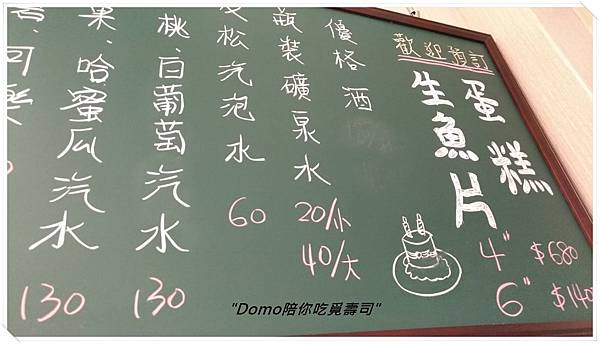 歡迎預訂
蛋糕
生魚片
4" $680
6"
優格酒
瓶裝礦泉水
20/小
40/大
松汽泡水
60
桃、白葡萄汽水
130
果、哈蜜瓜汽水
130
可樂
"Domo陪你吃覓壽司"